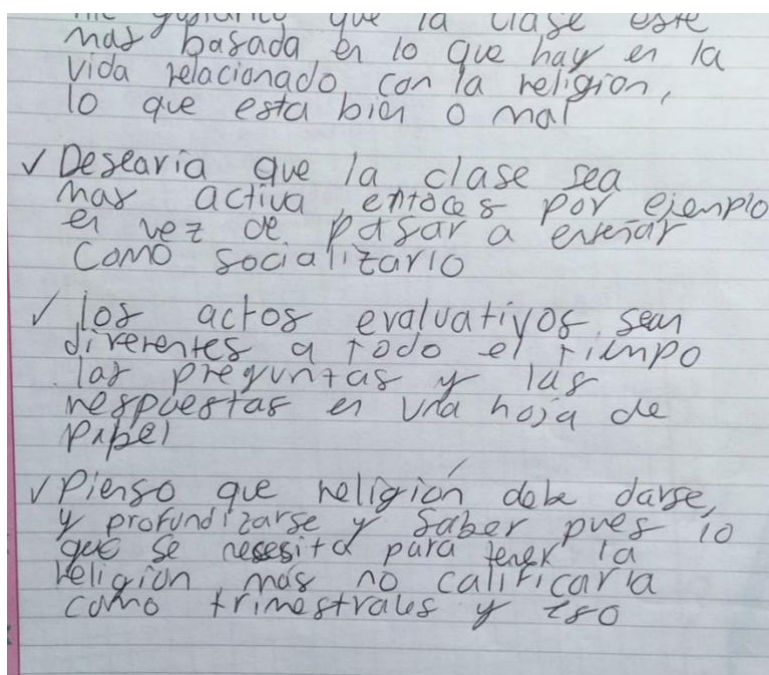 me gustaría que la clase este
mas basada en lo que hay en la
vida relacionado con la religion,
lo que esta bien o mal
✓ Desearia que la clase sea
mas activa, entoces por ejemplo
en vez de pasar a enseñar
como socializarlo
✓ los actos evaluativos sean
diverentes a todo el tiempo
las preguntas y las
respuestas en una hoja de
papel
✓ Pienso que religión debe darse,
y profundizarse y saber pues lo
que se nesesita para tener la
religion, mas no calificarla
como trimestrales y eso